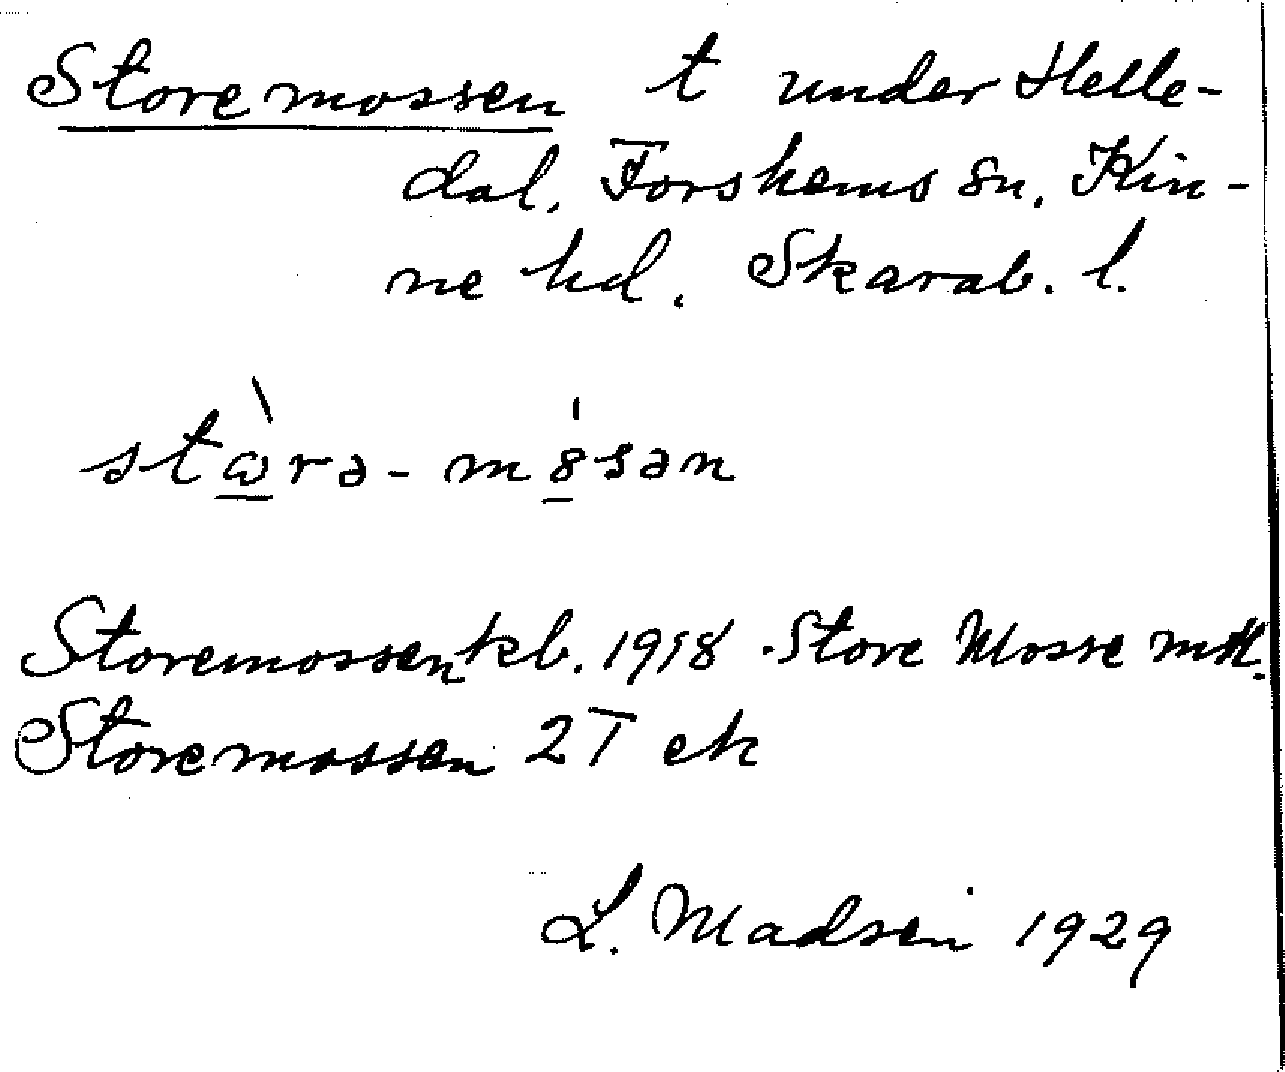 Storemossen t under Helle-
dal, Forshems sn, Kin-
ne hd. Skarab. l.
stɷ̀rə-m8́sən
Storemossen kb. 1918 . Store Mosse mtl.
Storemossen 2T ek
L. Madsen 1929